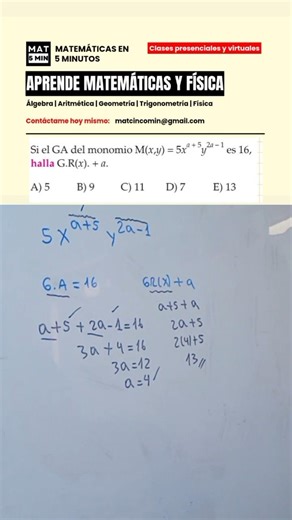 MAT
5 MIN
MATEMÁTICAS EN
5 MINUTOS
Clases presenciales y virtuales
APRENDE MATEMÁTICAS Y FÍSICA
Álgebra | Aritmética | Geometría | Trigonometría | Física
Contáctame hoy mismo: matcincomin@gmail.com
Si el GA del monomio M(x,y) = 5x^{a+5}y^{2a−1} es 16,
halla G.R(x). + a.
A) 5 B) 9 C) 11 D) 7 E) 13
5x^{a+5} y^{2a-1}
G.A = 16
a+5+2a-1=16
3a+4=16
3a=12
a=4
GR(x)+a
a+5+a
2a+5
2(4)+5
13